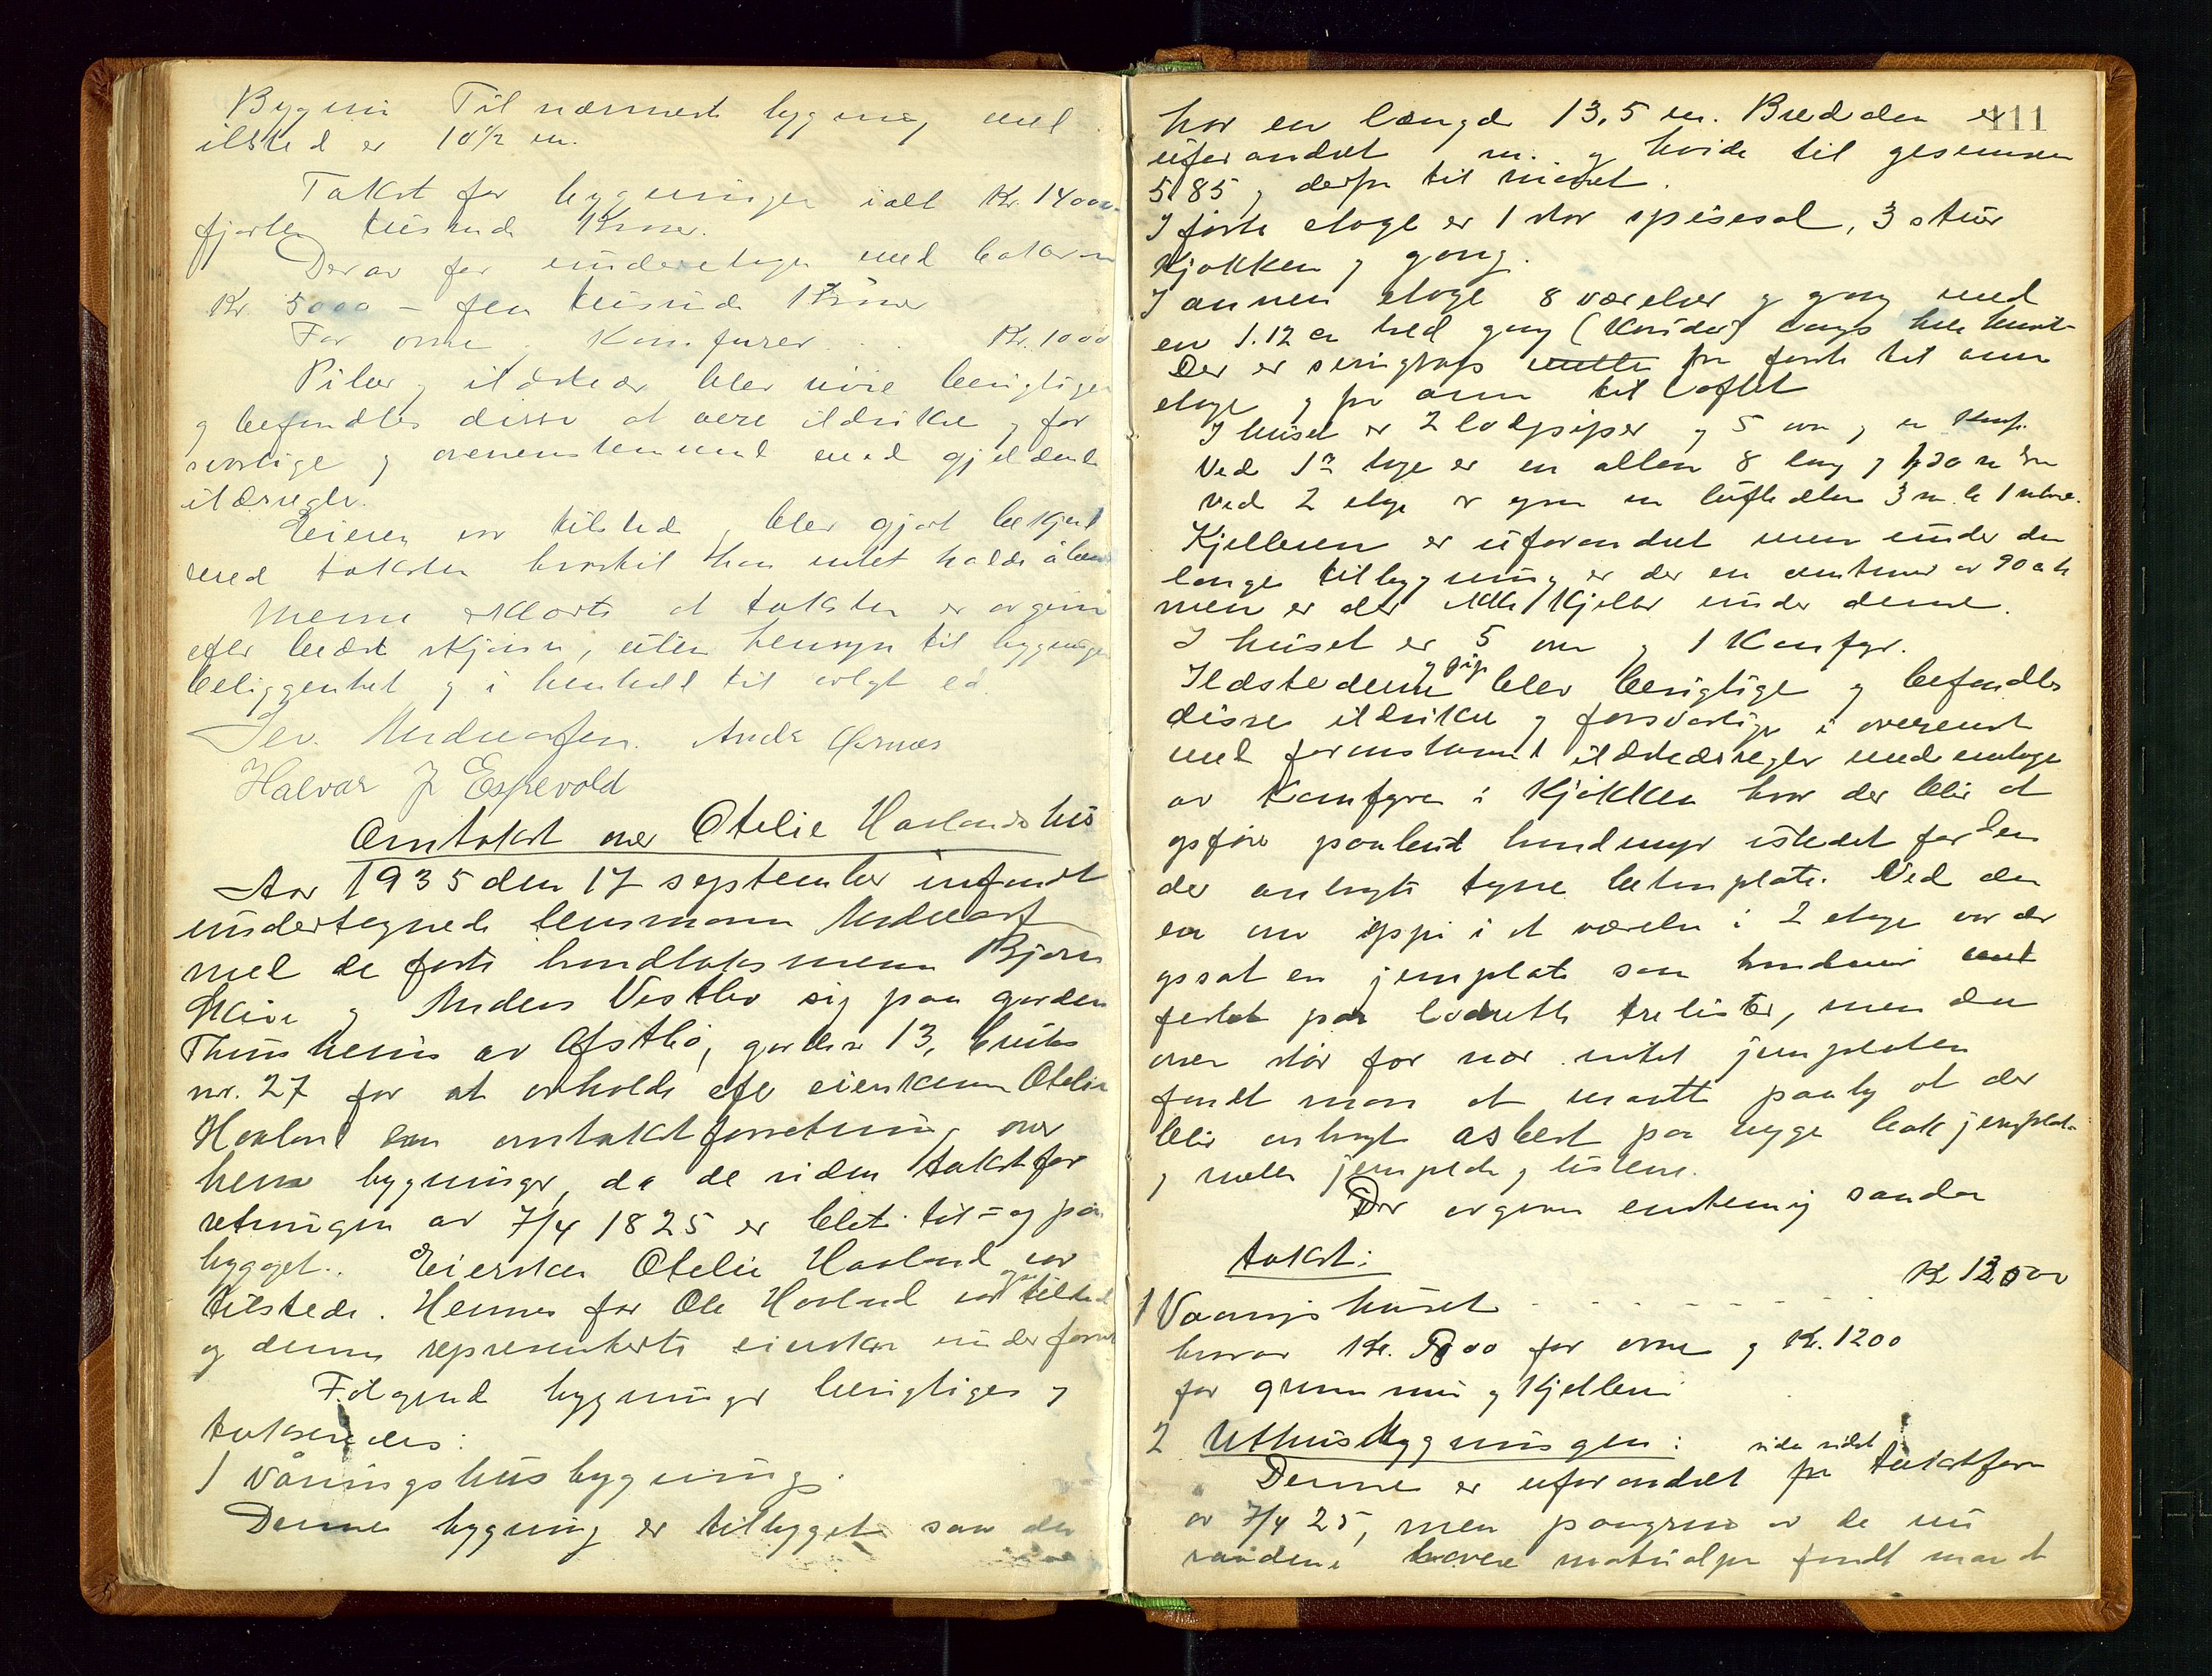 Bygnin Til nærmest bygning med
ilsted er 10½ m.
Takst for bygningen ialt Kr. 14000.
fjorten tusende Kroner.
Derav for underetagen med
Kr. 5000 - fem tusinde Kroner
For ovne, Komfurer . . Kr. 1000
Piber og ildsteder blev nøie besigtiget
og befundtes disse at være ildsikre og for
svarlige og overensstemmende med gjeldende
ildsregler.
Eieren var tilstede, blev gjort bekjent
med taksten hvortil han intet hadde å bem
Menn erklærte at taksten er avgivn
efter bedste skjønn, uten hensyn til bygningen
beliggenhet og i henhold til avlagt ed.
Halvar J Espevold
Omtakst over Otelie Havlands hus
Aar 1935 den 17 september infandt
undertegnede lensmann
med de faste hendtaksmenn Bjarn
og Anders Vestbø sig paa garden
av Østbø, gardsnr 13, bruks
nr. 27 for at avholde efter eiersken Otelie
Havland en omtakstforretning over
hens bygninger, da de siden takstfor
retningen av 7/4 1825 er blet til= og på
bygget. Eiersken Otelie Havland var
tilstede. Hennes far Ole Havland var tilsted
og denne representerte eiersken under forr
Følgende bygninger besigtiges og
takseredes:
1 Våningshusbygning.
Denne bygning er tilbygget saa den
111
har en længde 13,5 m. Bredden er
uforandret m. og høide til gesemsen
5,85 og derfra til mønet.
I første etage er 1 stor spisesal, 3 stuer
Kjøkken og gang.
I annen etage 8 værelser og gang med
en 1.12 m bred gang (Koridor) langs hele huset
Der er svingtrap fra første til annen
etage og fra annen til loftet
I huset er 2 lodpiper og 5 ovn og en Komf.
Ved 1ste etage er en altan 8 lang og
Ved 2 etage er ogsaa en luftaltan 3 m. b 1 metre.
Kjelleren er uforandret men under den
lange tilbygning er der en
men er der ikke Kjeller under denne.
I huset er 5 ovne og 1 Komfyr.
Ildstederne og pip blev besigtige og befandtes
disse ildsikre og forsvarlige i overenst
med forannstaaende ildstedsregler med undtage
av Komfyren i Kjøkken hvor der blir at
opføre paabudt brandmur istedet for den
der anbragte tynne betonplate. Ved den
en ovn oppi i et værelse i 2 etage var der
opsat en jernplate som brandmur
festet paa lodrette trelister, men da
ovnen står for nær intil jernplaten
fandt man at maatte paaby at der
blir anbragt asbest paa begge bak jernplate
og mellem jernplate og listene.
Der avgives enstemmig saadan
takst:
1 Vaaningshuset . . . . . . . . Kr 12500
hvorav Kr. 500 for ovne og Kr. 1200
for grunnmur og Kjelleren
2 Uthusbygningen:
Denne er uforandret siden sidst fra takstforr
av 7/4 25, men paagrunn av de nu
lavere materialpr fandt man at